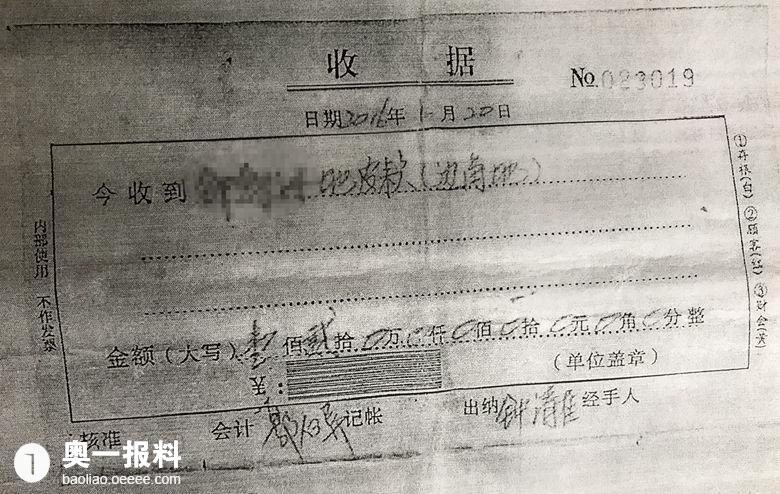 收据
№023019
日期2016年1月20日
今收到 地皮款(边角地)
金额(大写)壹佰贰拾0万0仟0佰0拾0元0角0分整
(单位盖章)
核准 会计 记帐 出纳 钟清佳 经手人
内部使用 不作发票
①存根(白) ②顾客(红) ③财会(黄)
1 奥一报料
baoliao.oeeee.com